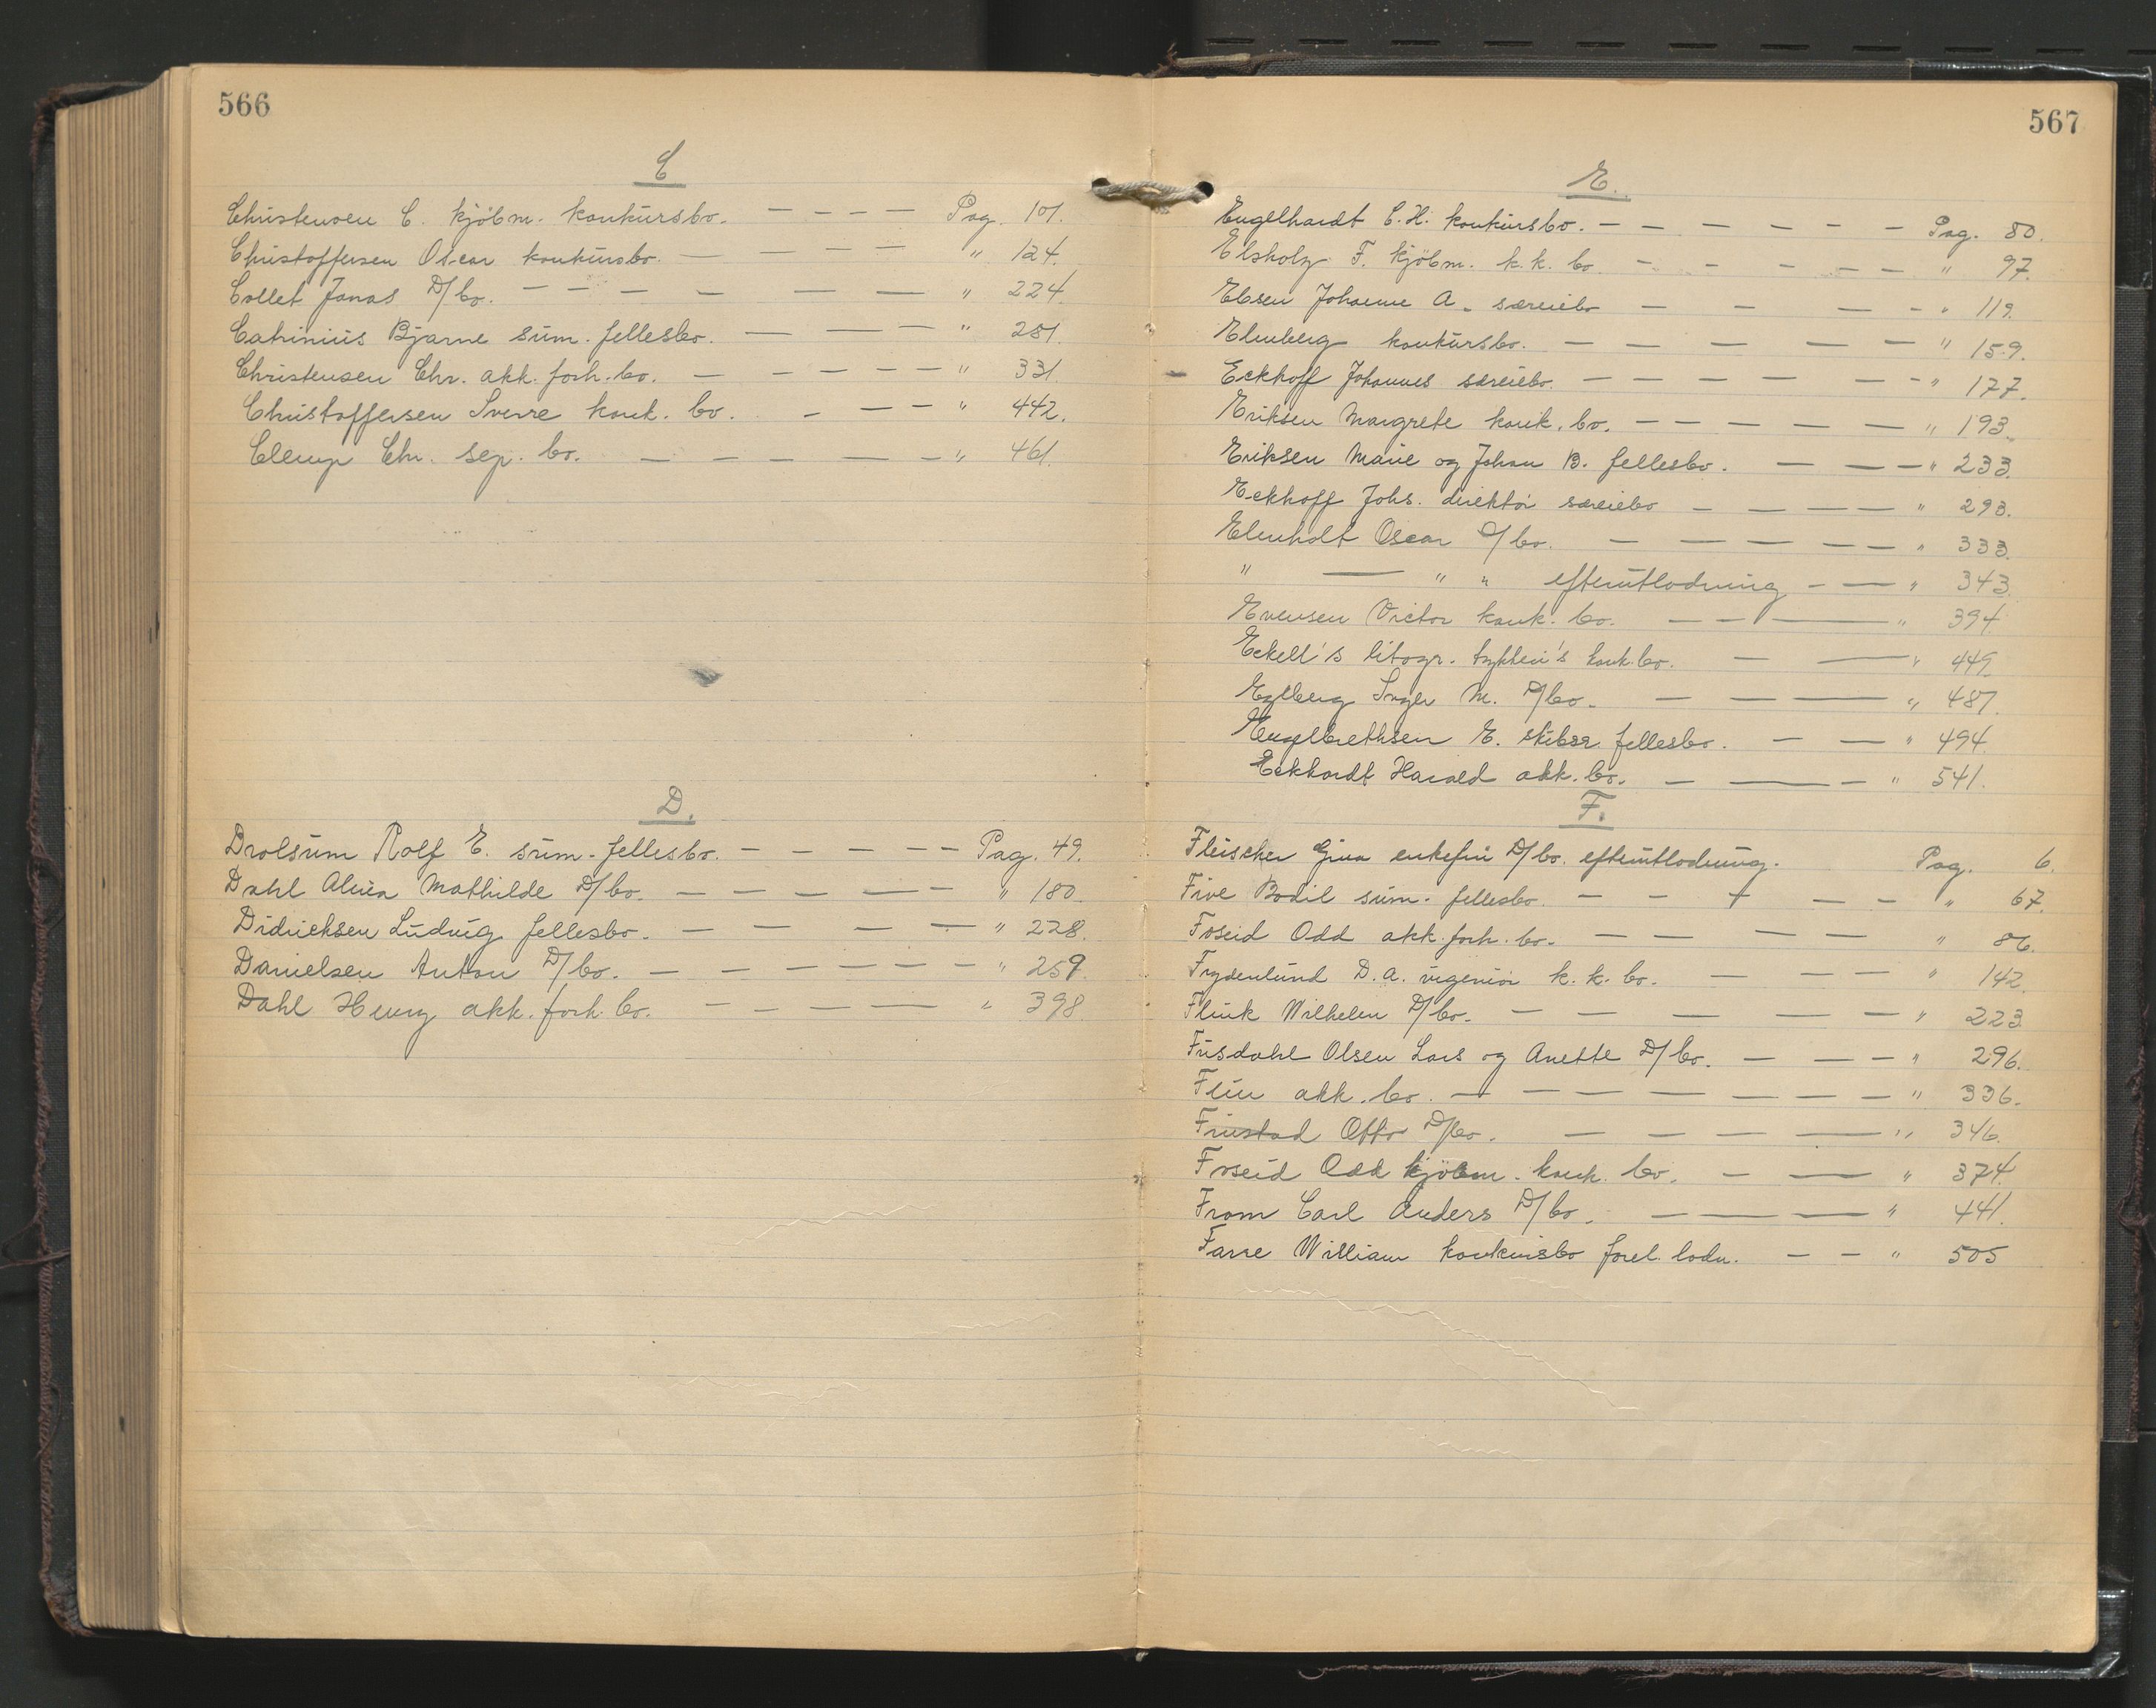 566
C
Christensen C. kjøbm. konkursbo. — — — — Pag. 101.
Christoffersen Oscar konkursbo. — — — — " 124.
Collet Jonas D/bo. — — — — — — " 224.
Cahinius Bjarne sum. fellesbo. — — — " 281.
Christensen Chr. akk. forh. bo. — — — — — " 331.
Christoffersen Sverre konk. bo. — — — " 442.
Clemp Chr. sep. bo. — — — — — " 461.
D.
Drolsum Rolf E. sum. fellesbo. — — — — — — Pag. 49.
Dahl Alvira Mathilde D/bo. — — — — — " 180.
Didricksen Ludvig fellesbo. — — — — " 228.
Danielsen Anton D/bo. — — — — — — " 259.
Dahl Henry akk. forh. bo. — — — — " 398.
567
E.
Engelhardt C. H. konkursbo. — — — — — — Pag. 80.
Elsholz F. kjøbm. k.k. bo. — — — — — " 97.
Ebsen Johanne A. særeiebo — — — — " 119.
Elmberg konkursbo. — — — — — " 159.
Eckhoff Johannes særeiebo. — — — — — — " 177.
Eriksen Margrete konk. bo. — — — — — " 193.
Eriksen Marie og Johan B. fellesbo. — — — " 233.
Eckhoff Johs. direktør særeiebo — — — — " 293.
Elenholt Oscar D/bo. — — — — — " 333.
" — " " efterutlodning — — " 343.
Evensen Victor konk. bo. — — — " 394.
Eckell's litogr. trykkeri's konk. bo. — — " 449.
Egeberg Inger M. D/bo. — — — " 487.
Engelbrethsen E. skibsr. fellesbo. — — " 494.
Eckhardt Harald akk. bo. — — — " 541.
F.
Fleischer Gina enkefru D/bo. efterutlodning. Pag. 6.
Five Bodil sum. fellesbo. — — — — — " 67.
Foseid Odd akk. forh. bo. — — — — " 86.
Frydenlund D. A. ingeniør k. k. bo. — — — " 142.
Flink Wilhelm D/bo. — — — — — " 223
Frisdahl Olsen Lars og Anette D/bo. — — — " 296.
Flin akk. bo. — — — — — — — " 336.
Frustad Otto D/bo. — — — — " 346.
Foseid Odd kjøbm. konk. bo. — — " 374.
From Carl Anders D/bo. — — — " 441.
Farre William konkursbo forel. lodn. — — " 505